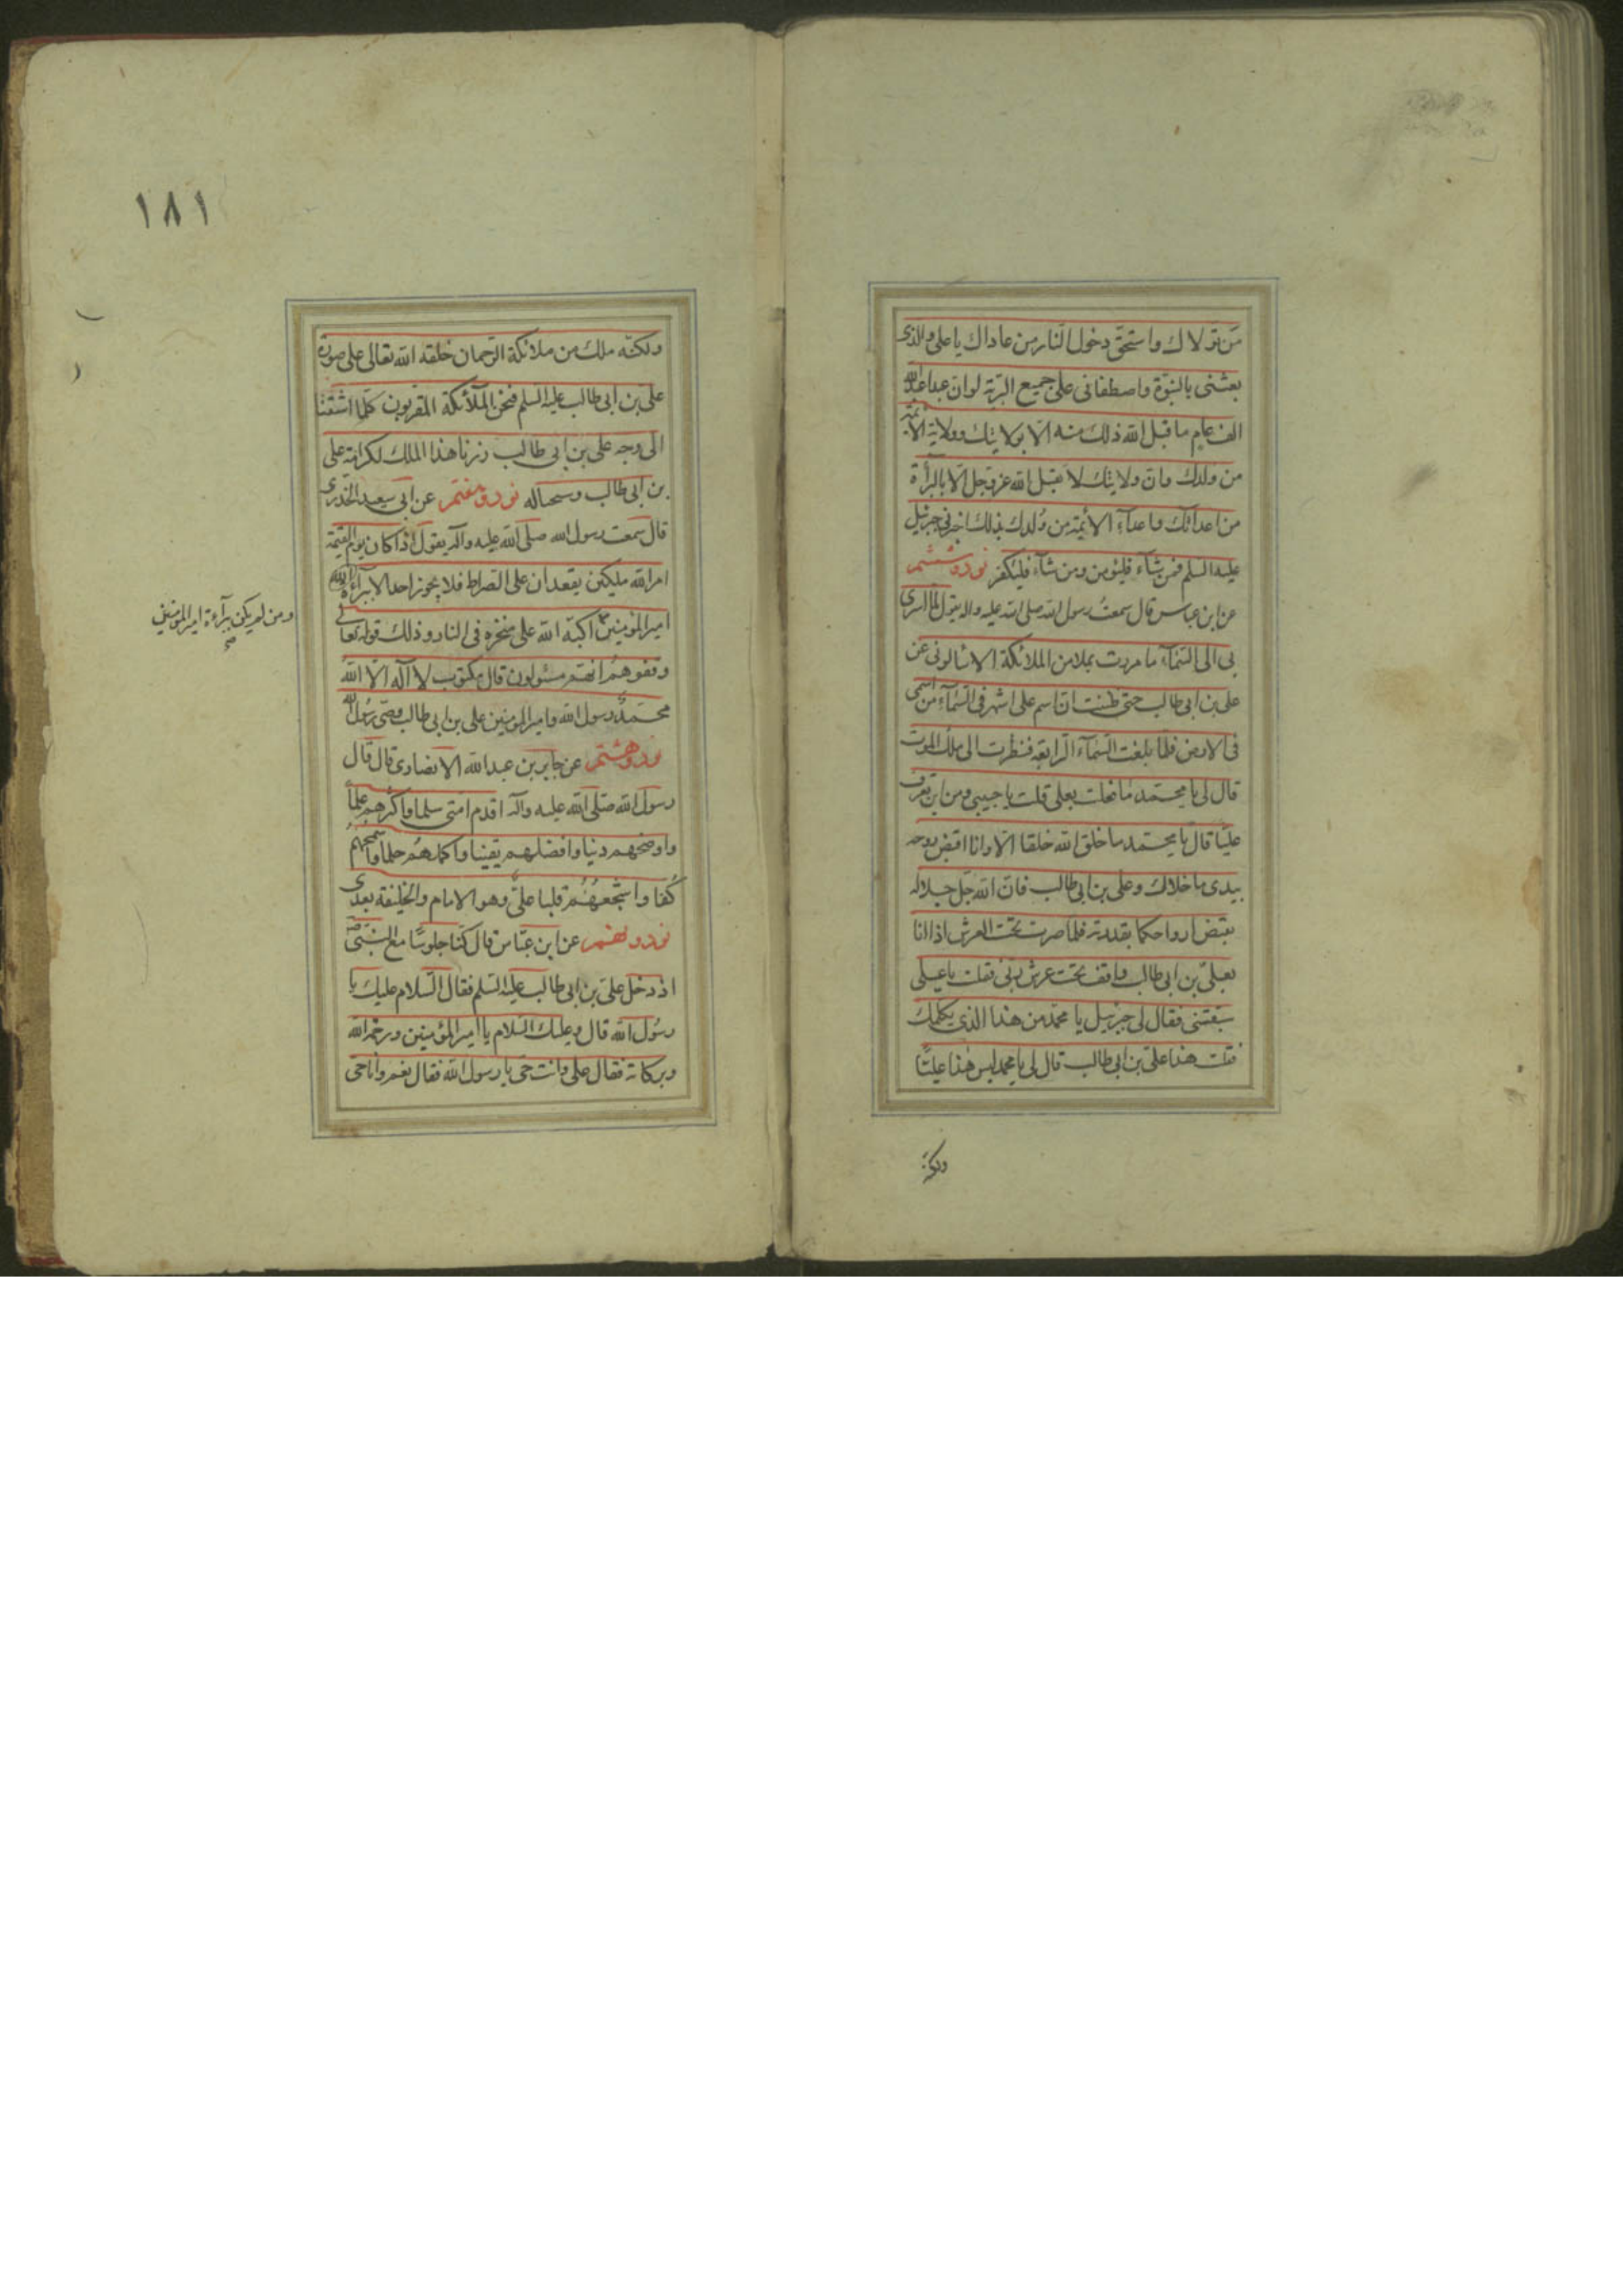 من تولاك واستحق دخول النار من عاداك يا على والذى
بعثنى بالنبوة واصطفانى على جميع البرية لو ان عبدا عبد الله
الف عام ما قبل الله ذلك منه الا بولايتك وولاية الائمة
من ولدك وان ولايتك لا يقبل الله عز وجل الا بالبرأة
من اعدائك واعدآء الأئمة من ولدك بذلك اخبرنى جبرئيل
عليه السلم فمن شآء فليؤمن ومن شآء فليكفر نود وششم
عن ابن عباس قال سمعت رسول الله صلى الله عليه واله يقول لما اسرى
بى الى السمآء ما مررت بملا من الملائكة الا سألونى عن
على بن ابى طالب حتى ظننت ان اسم على اشهر فى السمآء من اسمى
فى الارض فلما بلغت السمآء الرابعة فنظرت الى ملك الموت
قال لى يا محمد ما فعلت بعلى قلت يا حبيبى ومن اين تعرف
عليا قال يا محمد ما خلق الله خلقا الا وانا اقبض روحه
بيدى ما خلاك وعلى بن ابى طالب فان الله جل جلاله
يقبض ارواحكما بقدرته فلما صرت تحت العرش اذا انا
بعلى بن ابى طالب واقف تحت عرش ربى فقلت يا على
سبقتنى فقال لى جبرئيل يا محمد من هذا الذى يكلمك
فقلت هذا على بن ابى طالب قال لى يا محمد ليس هذا عليا
ولكنه
١٨١
ولكنه ملك من ملائكة الرحمان خلقه الله تعالى على صورة
على بن ابى طالب عليه السلم فنحن الملآئكة المقربون كلما اشتقنا
الى وجه على بن ابى طالب زرنا هذا الملك لكرامة على
بن ابى طالب وسبحانه نود وهفتم عن ابى سعيد الخدرى
قال سمعت رسول الله صلى الله عليه وآله يقول اذا كان يوم القيمة
امر الله ملكين يقعدان على الصراط فلا يجوز احد الا ببرآءة
امير المؤمنين اكبه الله على منخره فى النار وذلك قوله تعالى
ومن لم يكن برآءة امير المؤمنين
صح
وقفوهم انهم مسئولون قال مكتوب لا اله الا الله
محمد رسول الله وامير المؤمنين على بن ابى طالب وصى رسول الله
نود وهشتم عن جابر بن عبدالله الانصارى قال قال
رسول الله صلى الله عليه وآله اقدم امتى سلما واكثرهم علما
واوضحهم دينا وافضلهم يقينا واكملهم حلما واسمحهم
كفا واشجعهم قلبا على وهو الامام والخليفة بعدى
نود ونهم عن ابن عباس قال كنا جلوسا مع النبى
اذ دخل على بن ابى طالب عليه السلم فقال السلام عليك يا
رسول الله قال وعليك السلام يا امير المؤمنين ورحمة الله
وبركاته فقال على وانت حى يا رسول الله فقال نعم وانا حى